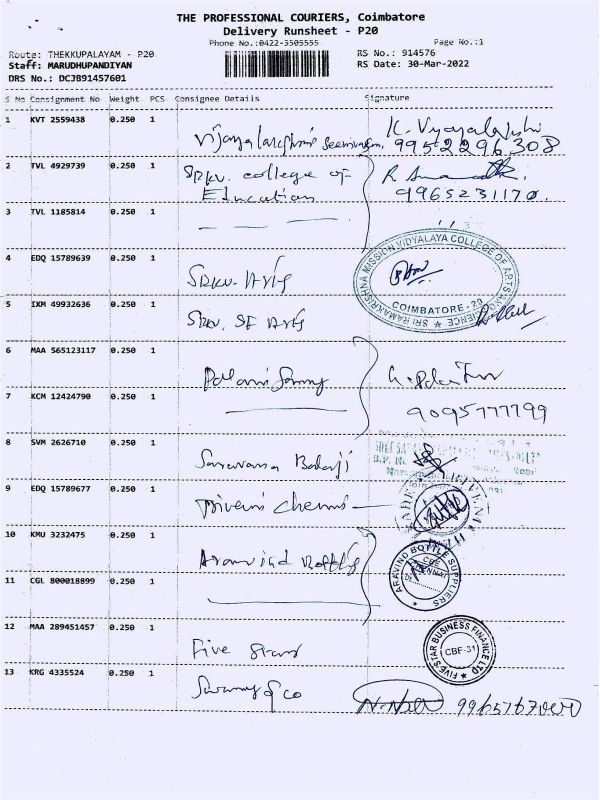 THE PROFESSIONAL COURIERS, Coimbatore
Delivery Runsheet - P20
Phone No.:0422-3505555
Page No.:1
Route: THEKKUPALAYAM - P20
RS No.: 914576
Staff: MARUDHUPANDIYAN
RS Date: 30-Mar-2022
DRS No.: DCJB91457601
S No Consignment No Weight PCS Consignee Details Signature
1 KVT 2559438 0.250 1
K. Vijayalakshmi
9952296308
2 TVL 4929739 0.250 1 SRKV. college of
Education
9965231170.
3 TVL 1185814 0.250 1
4 EDQ 15789639 0.250 1
SRKV. Arts
SRI RAMAKRISHNA MISSION VIDYALAYA COLLEGE OF ARTS AND SCIENCE
COIMBATORE-20
5 IXM 49932636 0.250 1
SRKV. SF Arts
6 MAA 565123117 0.250 1
7 KCM 12424790 0.250 1
9095777799
8 SVM 2626710 0.250 1
Saravana Balaji
9 EDQ 15789677 0.250 1
Triveni Chemi
10 KMU 3232475 0.250 1
Aravind Bottles
ARAVIND BOTTLE SUPPLIERS
CBE
11 CGL 800018099 0.250 1
12 MAA 289451457 0.250 1
Five Star
FIVE STAR BUSINESS FINANCE LTD
CBE-31
13 KRG 4335524 0.250 1
Swamy & co